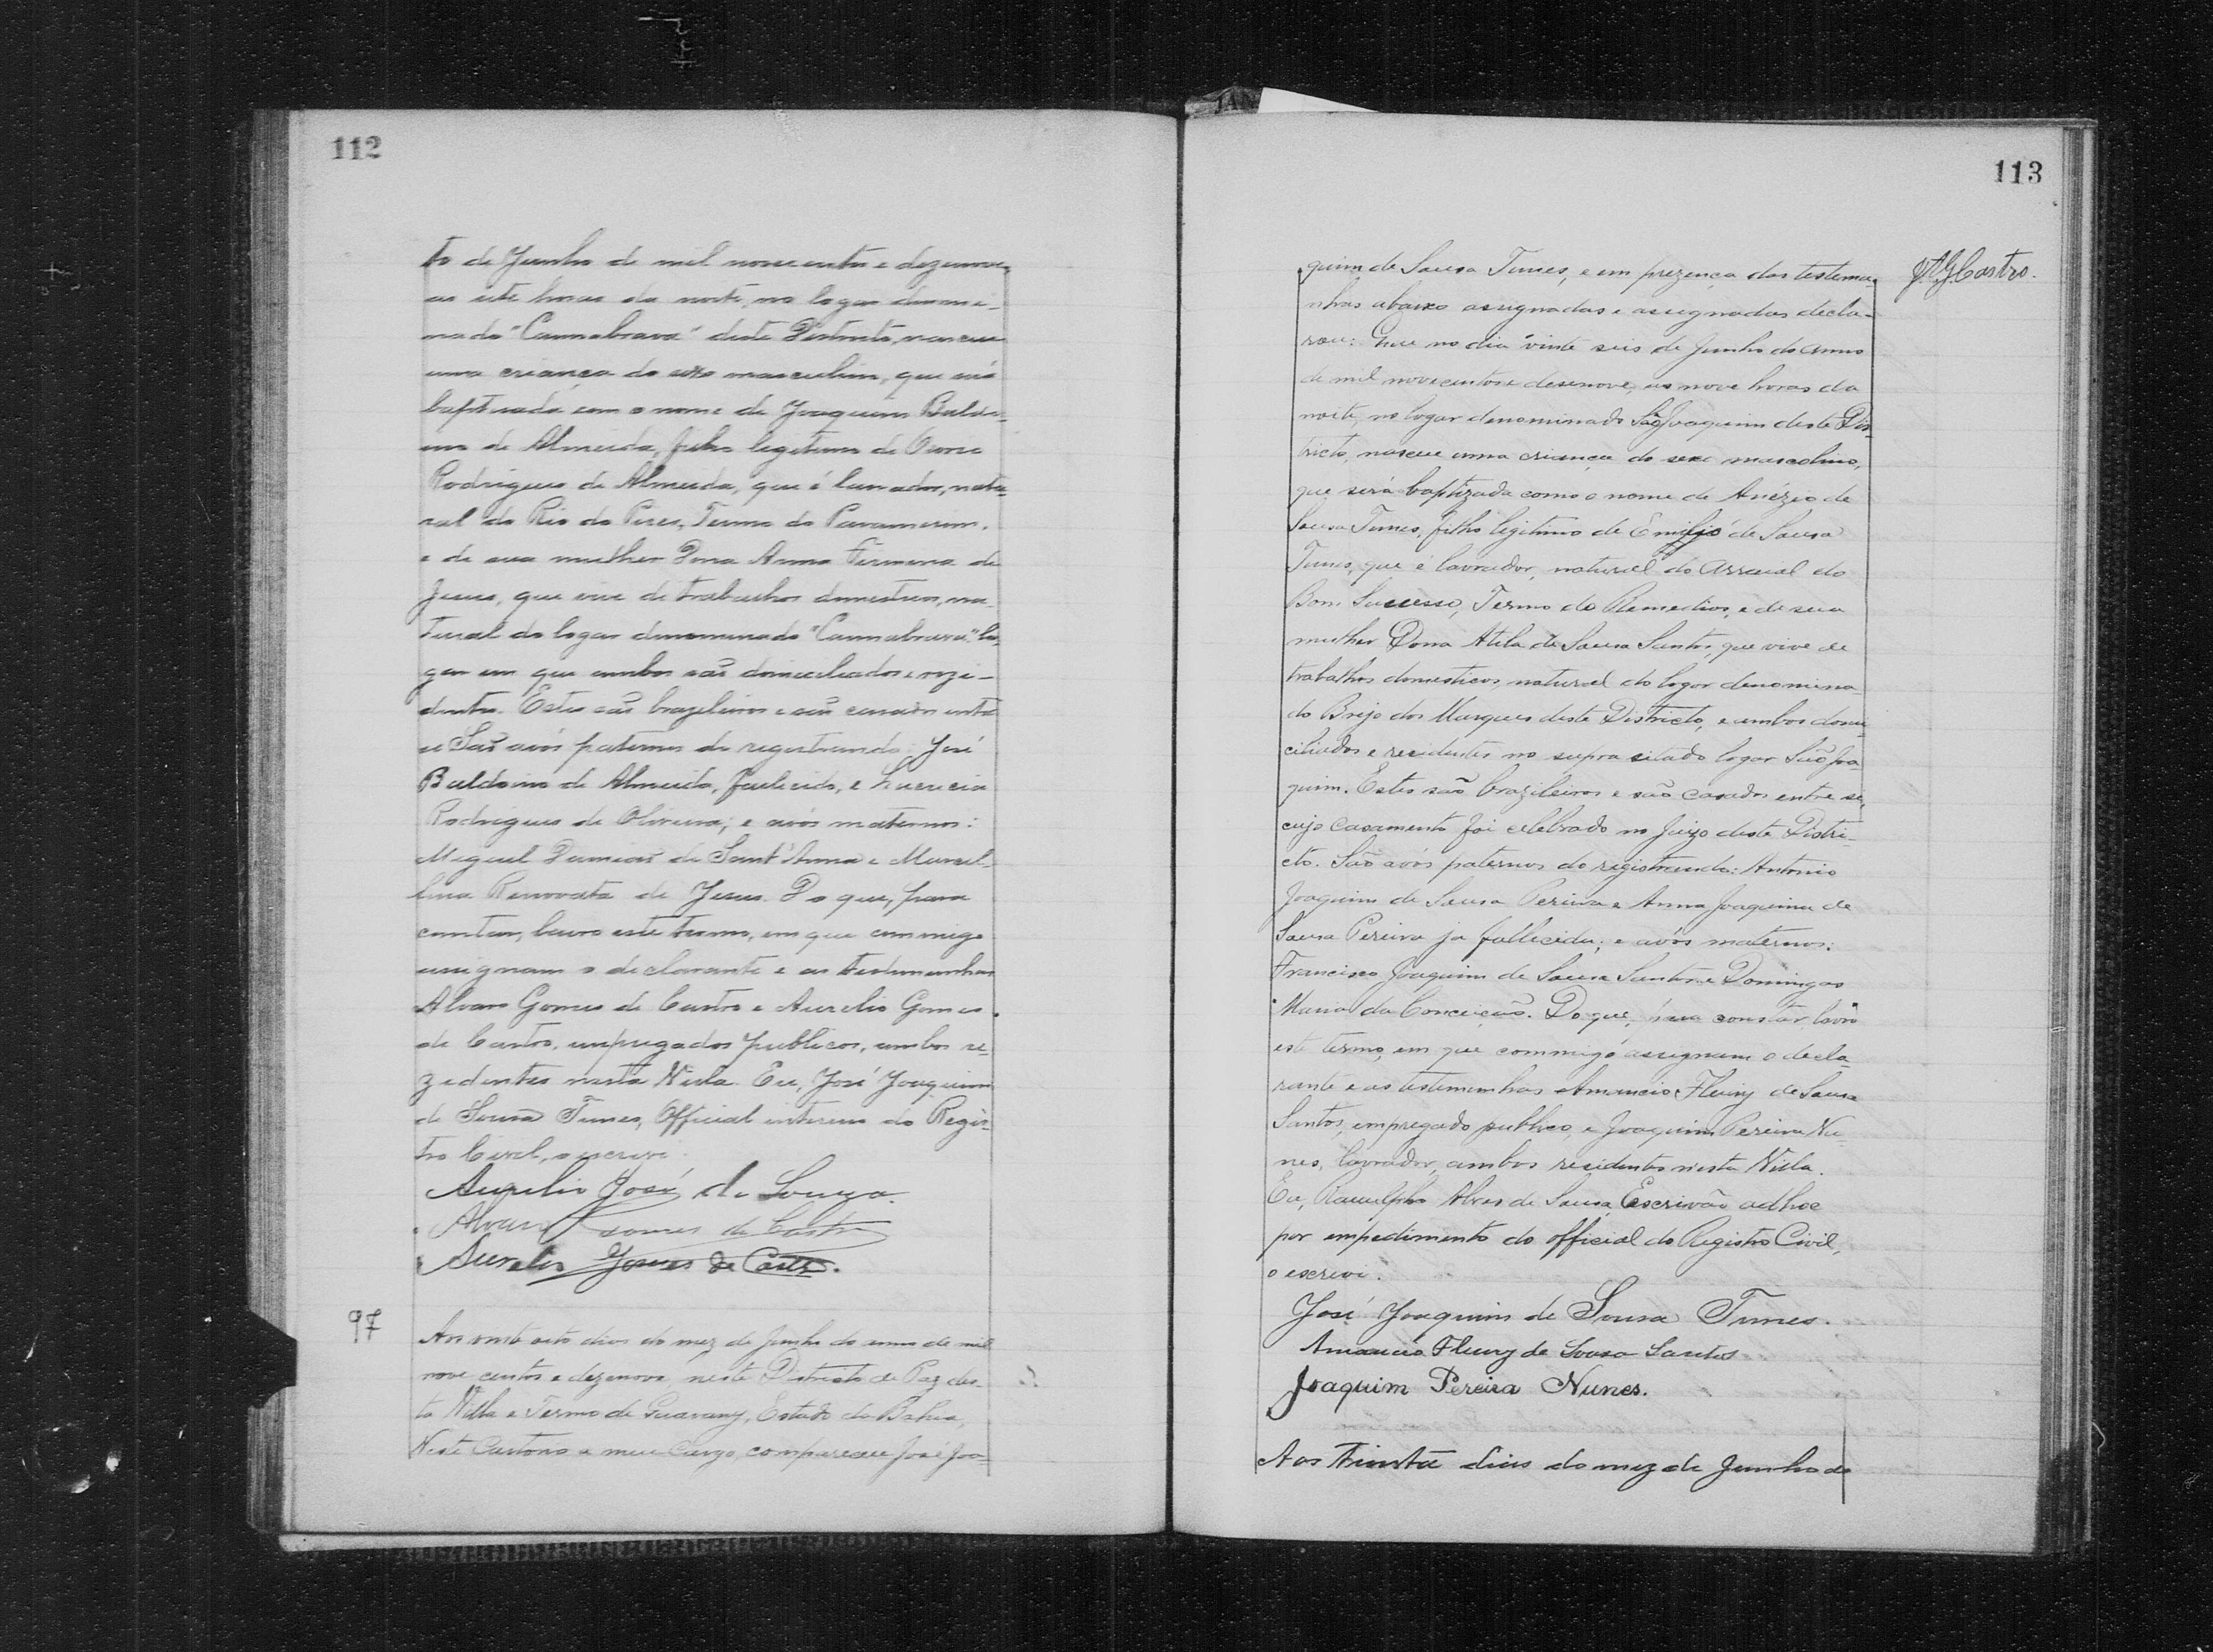 112
to de Junho de mil novecentos e dezenove,
as sete horas da noite, no logar denomi-
nado "Cannabrava" deste Districto, nasceu
uma criança do sexo masculino, que será
baptisada com o nome de Joaquim Baldo-
ino de Almeida, filho legitimo de
Rodrigues de Almeida, que é lavrador, natu-
ral do Rio do Pires, Termo do Paramerim,
e de sua mulher Dona Anna Firmina de
Jesus, que vive de trabalhos domesticos, na-
tural do logar denominado "Cannabrava" lo-
gar em que ambos são domiciliados e rezi-
dentes. Estes são brazileiros e são casados entre
si São avós paternos do registrando: José
Baldoino de Almeida, fallecido, e
Rodrigues de Oliveira; e avós maternos:
Miguel Damião de Sant'Anna e Marcel-
lina Renovata de Jesus. Do que, para
constar, lavro este termo, em que commigo
assignam o declarante e as testemunhas
Alvaro Gomes de Castro e Aurelio Gomes
de Castro, empregados publicos, ambos re-
zedentes nesta Villa. Eu, José Joaquim
de Sousa Tunes, Official interino do Regis-
tro Civil, o escrevi.
Aurelio José de Souza.
Alvaro Gomes de Castro
Aurelio Gomes de Castro.
97
Aos vinte oito dias do mez de Junho do anno de mil
nove centos e dezenove, neste Districto de Paz des-
ta Villa e Termo de Guarany, Estado da Bahia,
Neste Cartorio a meu Cargo, compareceu José Joa-
113
J.A.G.Castro.
quim de Sousa Tunes, e em prezença das testemu-
nhas abaixo assignadas e assignadas decla-
rou: Que no dia vinte seis de Junho do anno
de mil novecentos e desenove, as nove horas da
noite, no logar denominado São Joaquim deste Dis-
tricto, nasceu uma criança do sexo mascolino,
que será baptizada como o nome de Anézio de
Sousa Tunes, filho legitimo de Emilio de Sousa
Tunes, que é lavrador, natural do Arraial do
Bom Sucesso, Termo do Remedios, e de sua
mulher Dona Atila de Sousa Santos, que vive de
trabalhos domesticos, natural do logar denomina-
do Brejo dos Marques deste Districto, e ambos domi-
ciliados e residentes no supra sitado logar São Joa-
quim. Estes são brazileiros e são casados entre si,
cujo casamento foi celebrado no Juizo deste Distri-
cto. São avós paternos do registrando: Antonio
Joaquim de Sousa Pereira e Anna Joaquina de
Sousa Pereira ja fallecida; e avós maternos:
Francisco Joaquim de Sousa Santos e Domingas
Maria da Conceição. Do que, para constar, lavro
este termo, em que commigo assignam o decla-
rante e as testemunhas Amancio Fleury de Sousa
Santos, empregado publico, e Joaquim Pereira Nu-
nes, lavrador, ambos residentes nesta Villa.
Eu, Ranulpho Alves de Sousa, Escrivão adhoc
por empedimento do official do Registro Civil,
o escrevi.
José Joaquim de Sousa Tunes.
Amancio Fleury de Sousa Santos
Joaquim Pereira Nunes.
Aos trinta dias do mez de Junho do